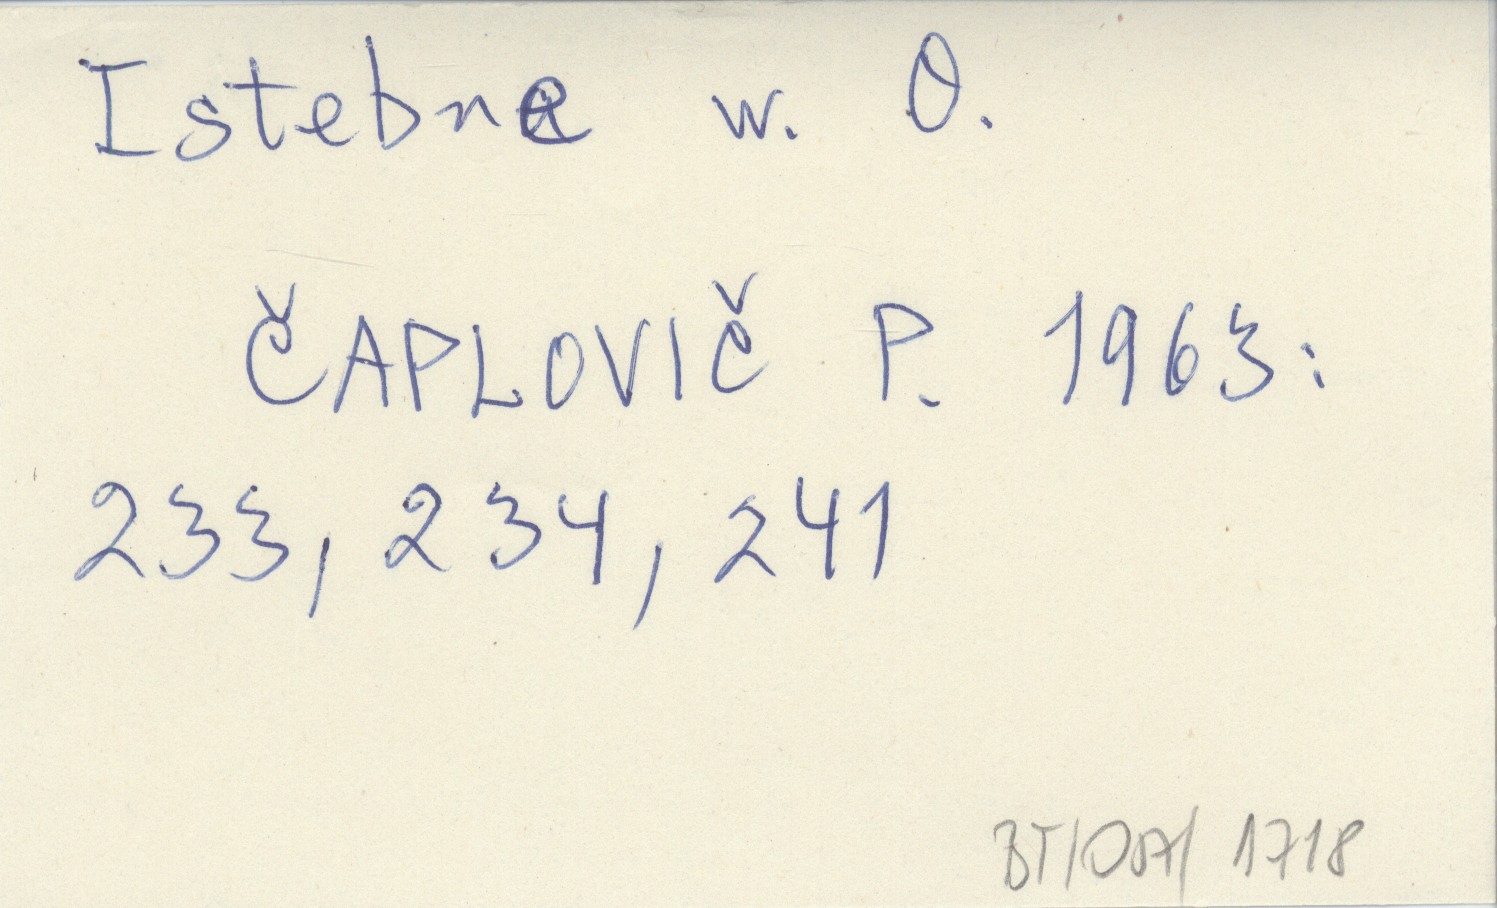 Istebne w. O.
ČAPLOVIČ P. 1963:
233, 234, 241
BT/OSA/ 1718